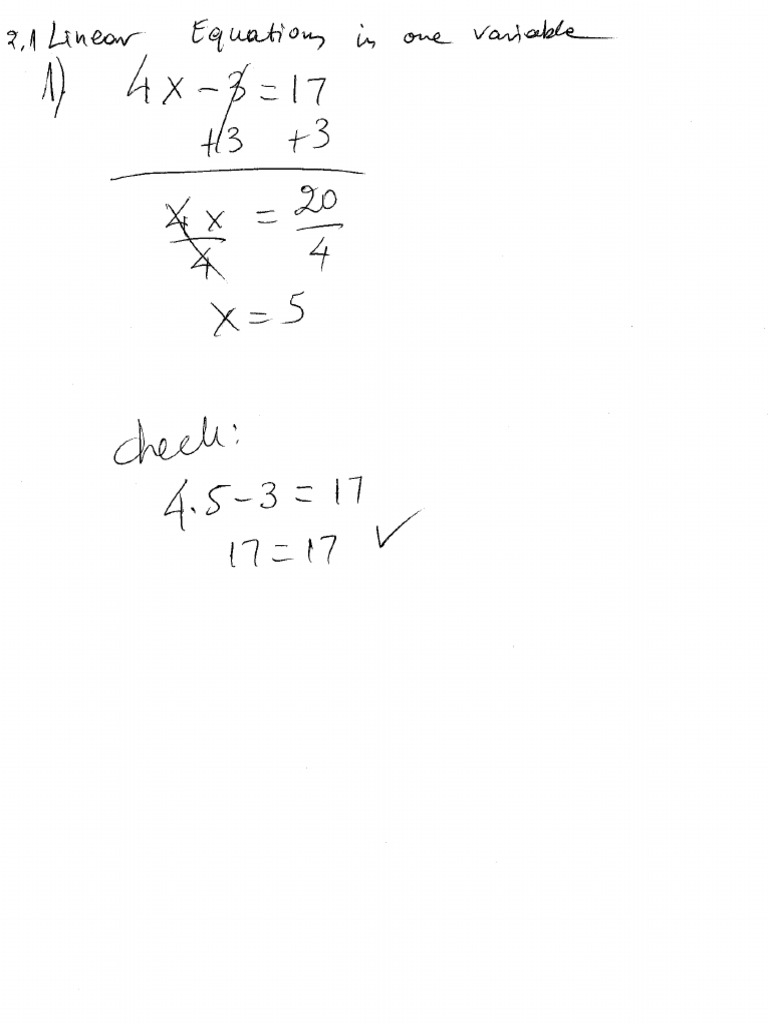 2.1 Linear Equations in one variable
1) 4x - 3 = 17
+3 +3
4x = 20
4 4
x = 5
check:
4.5-3 = 17
17 = 17 ✓